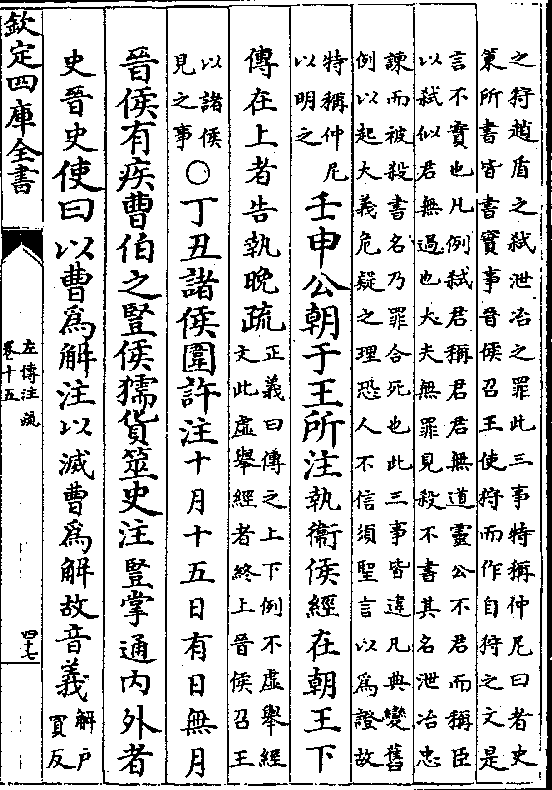 之狩趙盾之弑泄冶之罪此三事特稱仲尼曰者史
策所書皆書實事晉侯召王使狩而作自狩之文是
言不實也凡例弑君稱君君無道靈公不君而稱臣
以弑似君無過也大夫無罪見殺不書其名泄冶忠
諫而被殺書名乃罪合死也此三事皆違凡典變舊
例以起大義危疑之理恐人不信須聖言以爲證故
特稱仲尼
以明之
壬申公朝于王所注執衞侯經在朝王下
傳在上者告執晚疏
正義曰傳之上下例不虛舉經
文此虛舉經者終上晉侯召王
以諸侯
見之事
○丁丑諸侯圍許注十月十五日有日無月
晉侯有疾曹伯之豎侯獳貨筮史注豎掌通内外者
史晉史使曰以曹爲解注以滅曹爲解故音義
解户
買反
欽定四庫全書
左傳注疏
卷十五
四七